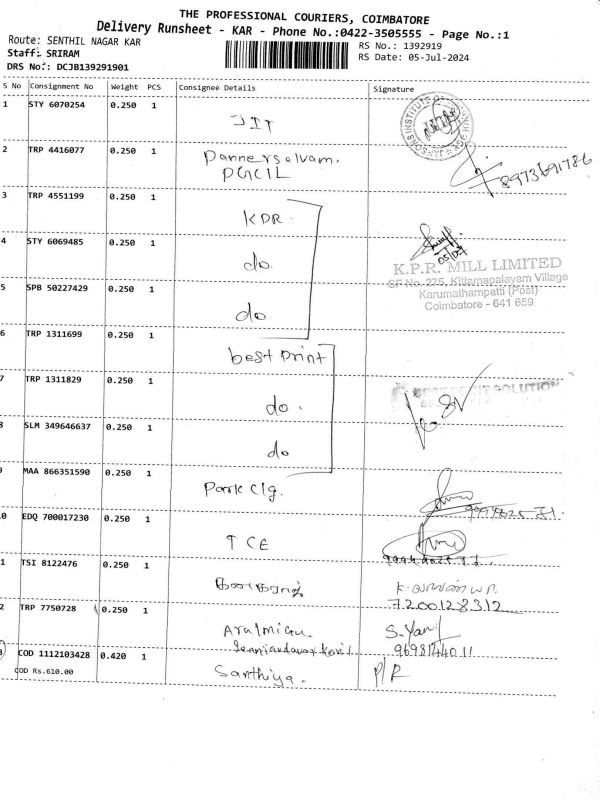 THE PROFESSIONAL COURIERS, COIMBATORE
Delivery Runsheet - KAR - Phone No.:0422-3505555 - Page No.:1
Route: SENTHIL NAGAR KAR
RS No.: 1392919
Staff: SRIRAM
RS Date: 05-Jul-2024
DRS No.: DCJB139291901
S No Consignment No Weight PCS Consignee Details Signature
1 STY 6070254 0.250 1
JIT
2 TRP 4416077 0.250 1 Pannerselvam.
PGCIL
8973691786
3 TRP 4551199 0.250 1
KPR
4 STY 6069485 0.250 1
do
05/07
K.P.R. MILL LIMITED
SF No. 275, Kittampalayam Village
Karumathampatti (Post)
Coimbatore - 641 659
5 SPB 50227429 0.250 1
do
6 TRP 1311699 0.250 1
best print
7 TRP 1311829 0.250 1
do
8 SLM 349646637 0.250 1
do
9 MAA 866351590 0.250 1
Park Clg.
0 EDQ 700017230 0.250 1
TCE
1 TSI 8122476 0.250 1
7200128312
2 TRP 7750728 0.250 1
Arulmigu
9698144011
3 COD 1112103428 0.420 1
COD Rs.610.00
Santhiya.
P/R